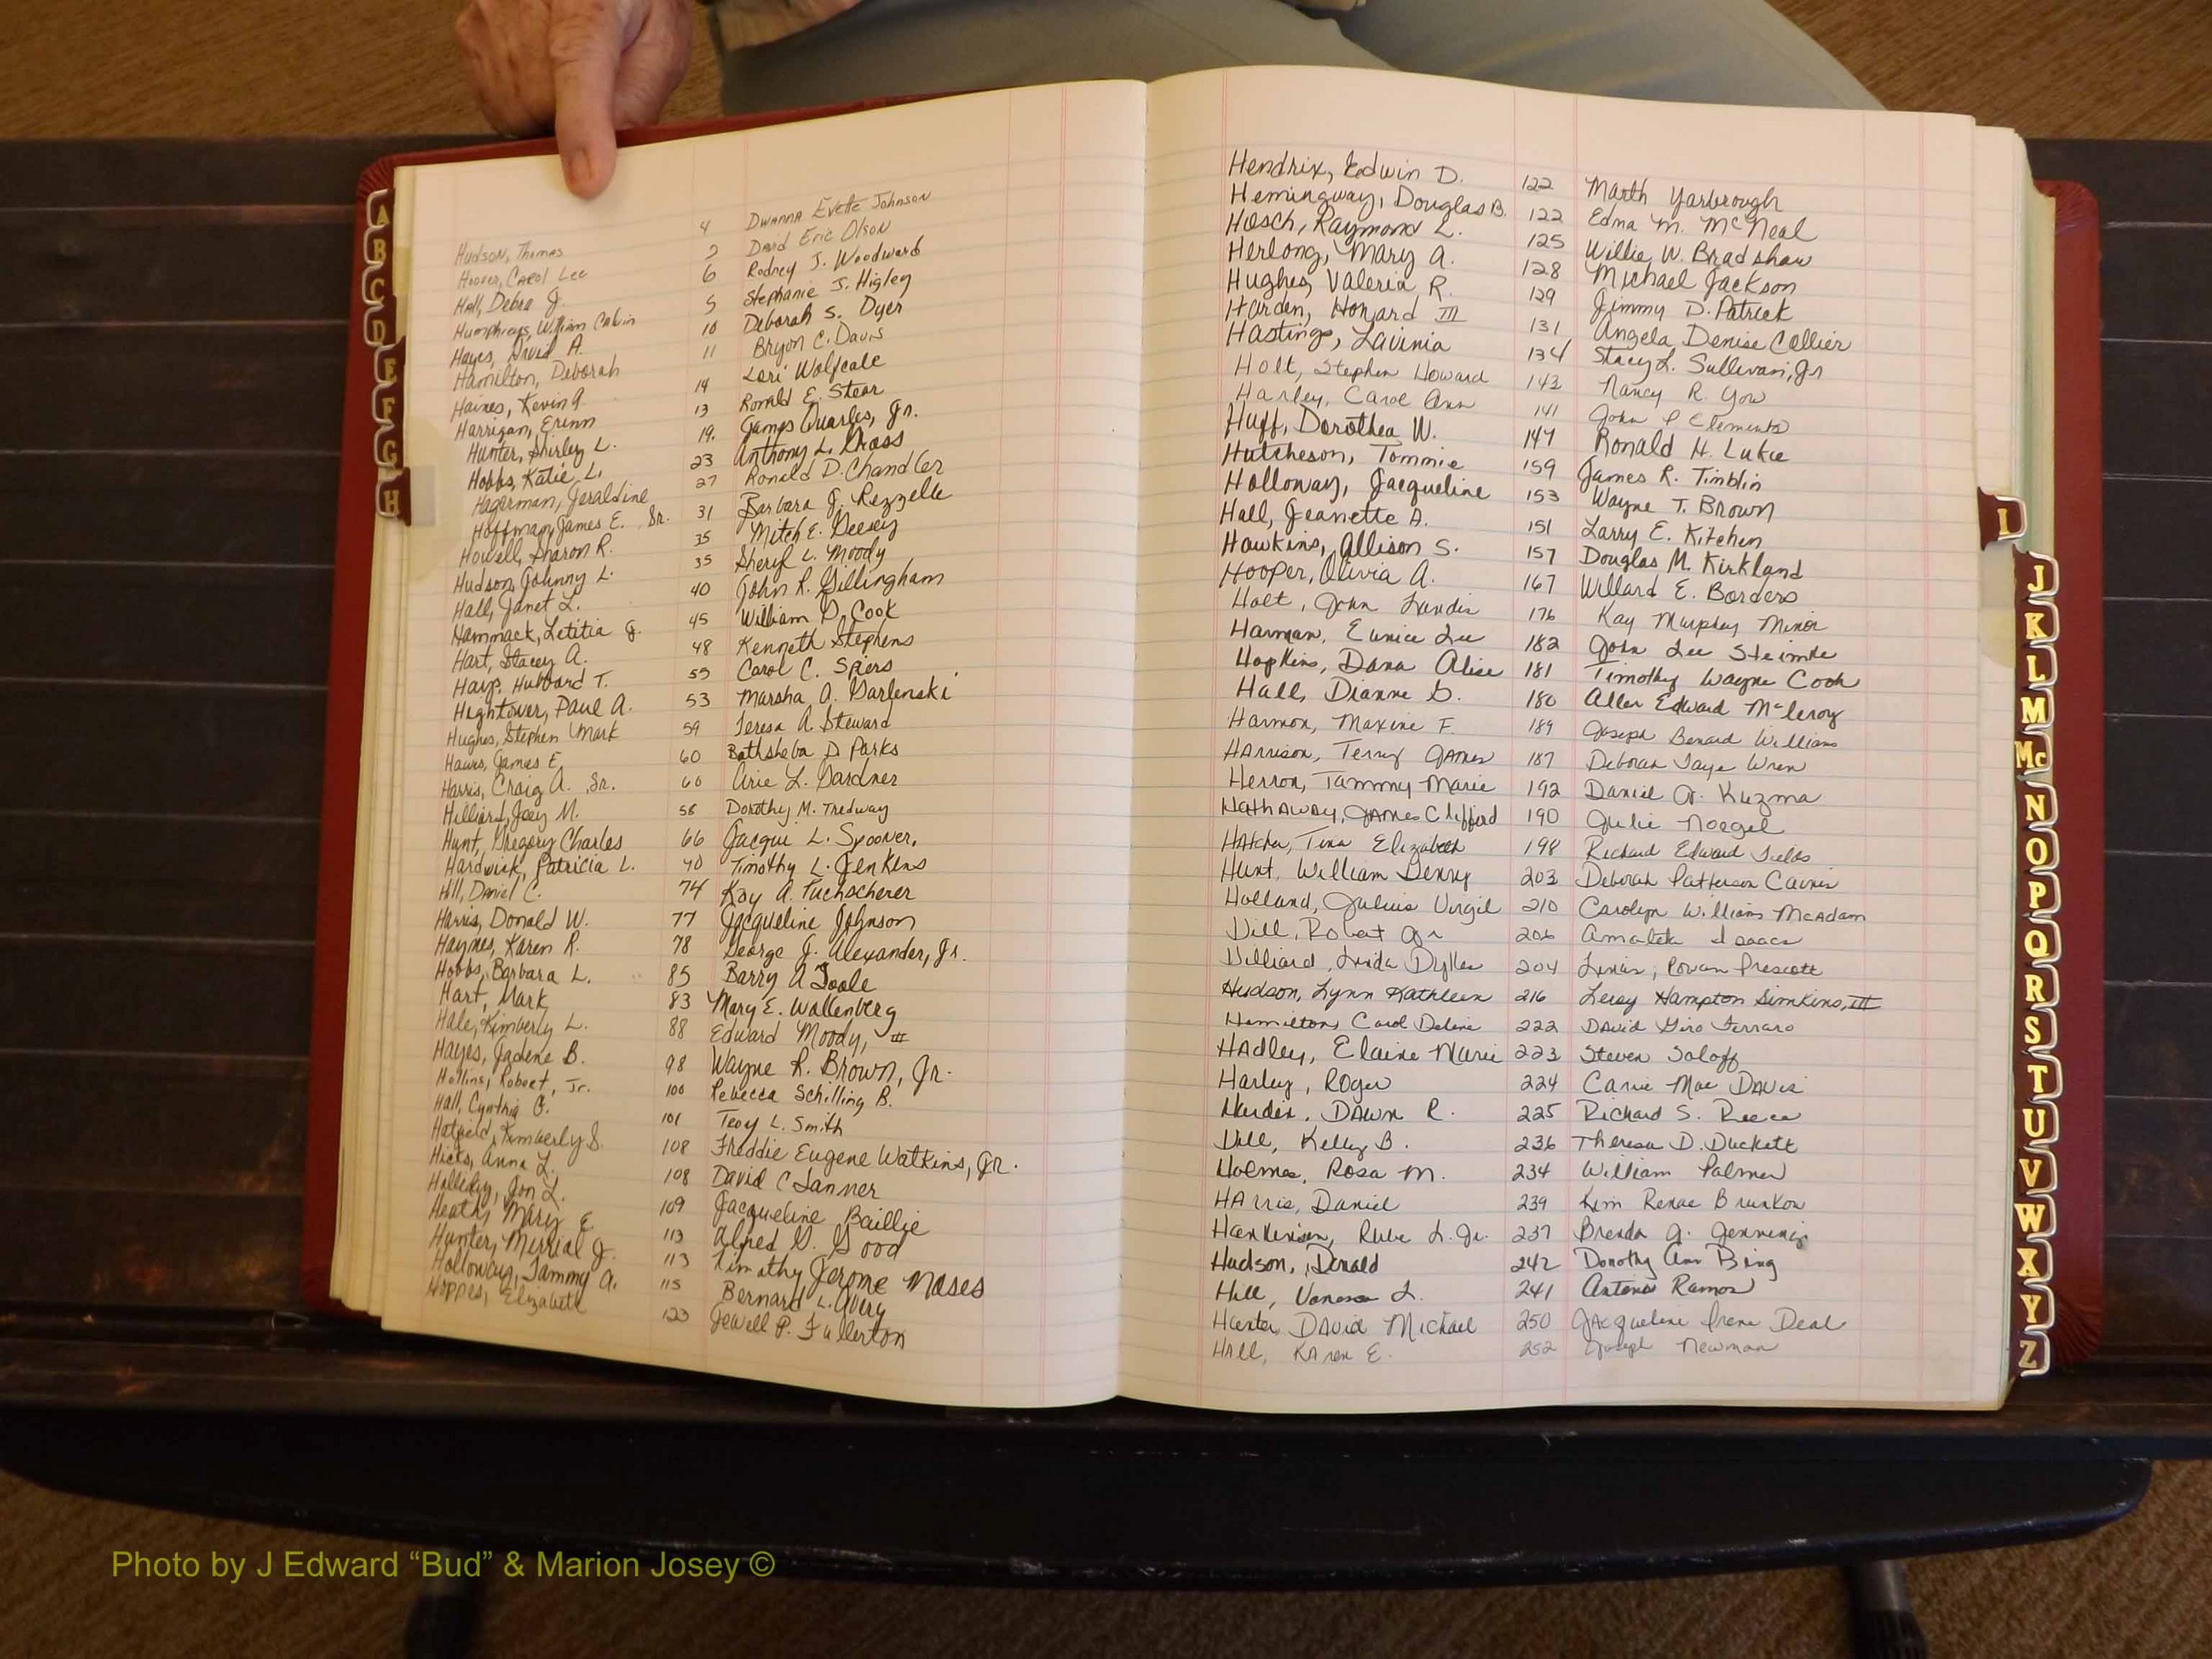 Hudson, Thomas 4 Dwanna Evette Johnson
Hoover, Carol Lee 2 David Eric Olson
Hall, Debra J. 6 Rodney J. Woodward
Humphreys, William Calvin 5 Stephanie J. Higley
Hayes, David A. 10 Deborah S. Dyer
Hamilton, Deborah 11 Bryon C. Davis
Haines, Kevin A. 14 Lori Wolfcale
Harrigan, Erinn 13 Ronald E. Stear
Hunter, Shirley L. 19. James Quarles, Jr.
Hobbs, Katie L. 23 Anthony L. Drass
Hagerman, Geraldine 27 Ronald D. Chandler
Hoffman, James E. Sr. 31 Barbara J. Rezzelle
Howell, Sharon R. 35 Mitch E. Geesey
Hudson, Johnny L. 35 Sheryl L. Moody
Hall, Janet L. 40 John R. Gillingham
Hammack, Letitia G. 45 William D. Cook
Hart, Stacey A. 48 Kenneth Stephens
Harp, Hubbard T. 55 Carol C. Spiers
Hightower, Paul A. 53 Marsha O. Garlenski
Hughes, Stephen Mark 59 Teresa A. Steward
Haws, James E. 60 Bathsheba D Parks
Harris, Craig A. Sr. 60 Arie L. Gardner
Hilliard, Joey M. 58 Dorothy M. Tredway
Hunt, Gregory Charles 66 Jacqui L. Spooner,
Hardwick, Patricia L. 70 Timothy L. Jenkins
Hill, Daniel C. 74 Kay A. Puchscherer
Harris, Donald W. 77 Jacqueline Johnson
Haynes, Karen R. 78 George J. Alexander, Jr.
Hobbs, Barbara L. 85 Barry A Toole
Hart, Mark 83 Mary E. Wallenberg
Hale, Kimberly L. 88 Edward Moody, III
Hayes, Jadene B. 98 Wayne R. Brown, Jr.
Hollins, Robert, Jr. 100 Rebecca Schilling B.
Hall, Cynthia G. 101 Troy L. Smith
Hatfield, Kimberly S. 108 Freddie Eugene Watkins, Jr.
Hicks, Anna L. 108 David C Lanner
Halliday, Jon L. 109 Jacqueline Baillie
Heath, Mary E 113 Alfred G. Good
Hunter, Merrial J. 113 Timothy Jerome Moses
Holloway, Tammy A. 115 Bernard L. Avery
Hoppes, Elizabeth 123 Jewell P. Fullerton
Hendrix, Edwin D. 122 Marth Yarbrough
Hemingway, Douglas B. 122 Edna M. McNeal
Hosch, Raymond L. 125 Willie W. Bradshaw
Herlong, Mary A. 128 Michael Jackson
Hughes, Valeria R. 129 Jimmy D. Patrick
Harden, Howard III 131 Angela Denise Collier
Hastings, Lavinia 134 Stacey L. Sullivan, Jr
Holt, Stephen Howard 143 Nancy R. Yow
Harley, Carol Ann 141 John P Clements
Huff, Dorothea W. 147 Ronald H. Lukie
Hutcheson, Tommie 159 James R. Timblin
Holloway, Jacqueline 153 Wayne T. Brown
Hall, Jeanette A. 151 Larry E. Kitchen
Hawkins, Allison S. 157 Douglas M. Kirkland
Hooper, Olivia A. 167 Willard E. Borders
Holt, John Landis 176 Kay Murphey Minor
Harman, Eunice Lee 182 John Lee Steimle
Hopkins, Dana Alise 181 Timothy Wayne Cook
Hall, Dianne G. 180 Allen Edward McLeroy
Harmon, Maxine F. 189 Joseph Benard Williams
Harrison, Terry James 187 Deborah Jaye Wren
Herron, Tammy Marie 192 Daniel A. Kuzma
Hathaway, James Clifford 190 Julie Noegel
Hatcher, Tina Elizabeth 198 Richard Edward Fields
Hunt, William Denny 203 Deborah Patterson Caines
Holland, Julius Virgil 210 Carolyn Williams McAdam
Hill, Robert Jr 206 Amaleta Isaacs
Hilliard, Linda Dykes 204 Rowan Prescott
Hudson, Lynn Kathleen 216 Leroy Hampton Simkins, III
Hamilton, Carol Delene 222 David Giro Ferraro
Hadley, Elaine Marie 223 Steven Soloff
Harley, Roger 224 Carrie Mae Davis
Harden, Dawn R. 225 Richard S. Reece
Hill, Kelly B. 236 Theresa D. Duckett
Holmes, Rosa M. 234 William Palmer
Harris, Daniel 239 Kim Renae Brunkow
Hankinson, Rube L. Jr. 237 Brenda G. Jennings
Hudson, Donald 242 Dorothy Ann Bing
Hill, Vanessa L. 241 Antonio Ramos
Hunter, David Michael 250 Jacqueline Irene Deal
Hall, Karen E. 252 Joseph Newman
A
B
C
D
E
F
G
H
I
J
K
L
M
Mc
N
O
P
Q
R
S
T
U
V
W
X
Y
Z
Photo by J Edward “Bud” & Marion Josey ©